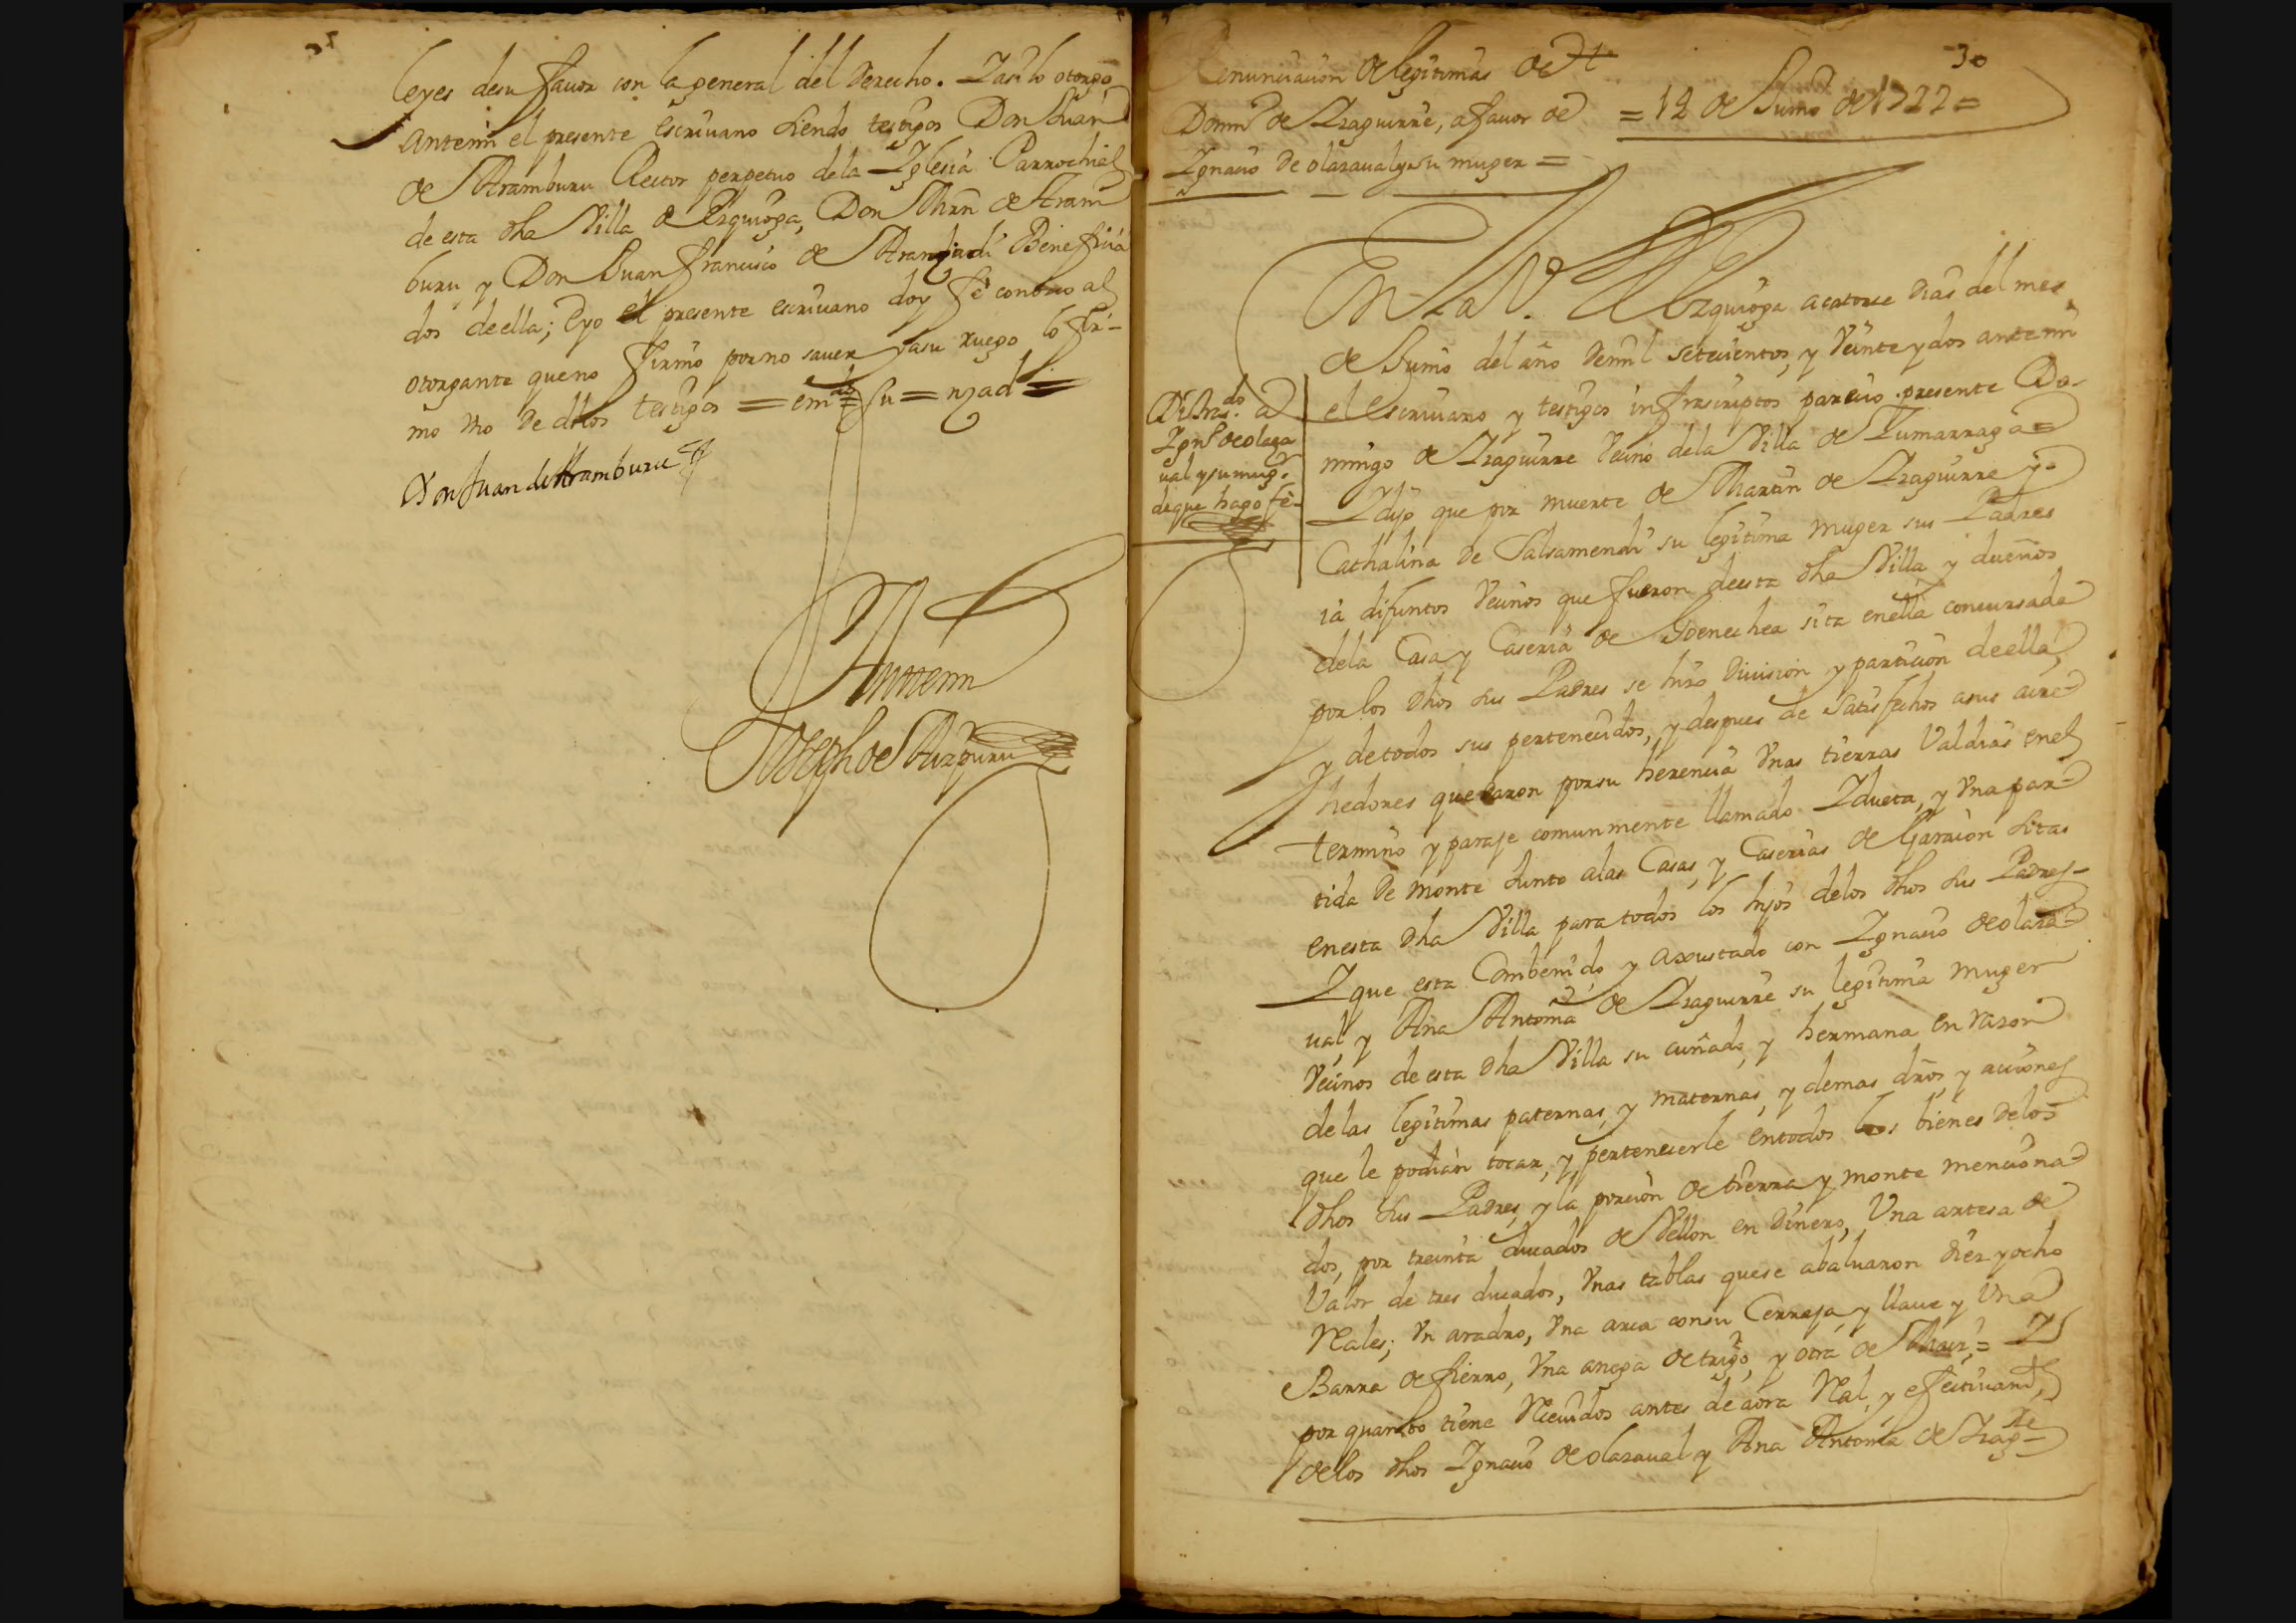 leyes de su favor con la general del derecho. Y asi lo otorgo
antemi el presente escriuano siendo testigos Don Juan
de Aramburu Rector perpetuo dela Yglesia Parrochial
de esta dha Villa de Ezquioga, Don Mrn de Aram
buru y Don Juan francisco de Aranzadi Beneficia
dos de ella; Eyo el presente escriuano doy fè conozco al
otorgante que no firmò por no sauer y asu ruego lo fir-
mo vno de dhos testigos = emdo = su = nzad =
Don Juan de Aramburu
Antemi
Joseph de Aizpuru
30
Renunciacion de legitimas de
Domo de Yzaguirre, a fauor de
Ygnacio de olazaual y su muger =
= 14 de Junio de 1722 =
En La V. de Ezquioga acatorze dias del mes
de Junio del año de mil setecientos, y Veinte y dos antemi
el escriuano y testigos infrascriptos parecio presente Do-
mingo de Yzaguirre Vecino dela Villa de Zumarraga =
Y dijo que por muerte de Martin de Yzaguirre y
Cathalina de Salsamendi su legitima muger sus Padres
ia difuntos Vecinos que fueron de esta dha Villa y dueños
dela Casa y Caseria de Goenechea sita en ella concursada
por los dhos sus Padres se hizo division y particion de ella,
y de todos sus pertenecidos, y despues de satisfechos asus acre
hedores quedaron por su herencia Vnas tierras Valdias en el
termino y paraje comunmente llamado Ydueta, y Vna par
tida de monte Junto alas Casas, y Caserias de Garcion sitas
en esta dha Villa para todos los hijos delos dhos sus Padres -
Y que esta Combenido, y axustado con Ygnacio de olaza
ual, y Ana Antonia de Yzaguirre su legitima muger
Vecinos de esta dha Villa su cuñado, y hermana en razon
delas legitimas paternas, y maternas, y demas dros, y acciones
que le podian tocar, y pertenecerle en todos los bienes delos
dhos sus Padres, y la porcion de tierra y monte menciona
dos, por treinta ducados de Vellon en dinero, Vna artesa de
Valor de tres ducados, Vnas tablas que se abaluaron diez y ocho
Reales; Vn aradro, Vna arca con su Cerraja, y llaue y Vna
Barra de fierro, Vna anega de trigo, y otra de Maiz = Y
por quanto tiene Recivido antes de aora Real, y efectiuamte
delos dhos Ygnacio de olazaual y Ana Antonia de Yzagre
Di trasdo a
Ygno de olaza
ual y su mugr
de que hago fè -